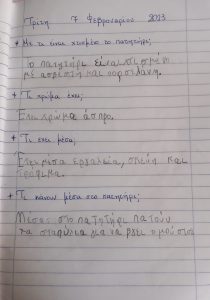 Τριτη 7 Φεβρουαριου 2023
* Με τι ειναι χτισμένο το πατητήρι;
Το πατητήρι είναι χτισμένο
με ασβέστη και
* Τι χρώμα έχει;
Εχει χρώμα άσπρο.
* Τι εχει μέσα;
Εχει μεσα εργαλεία, σκεύη και
τρόφιμα.
* Τι κανουν μέσα στο πατητηρι;
Μέσα στο πατητήρι πατούν
τα σταφύλια για να βγει ο μούστος